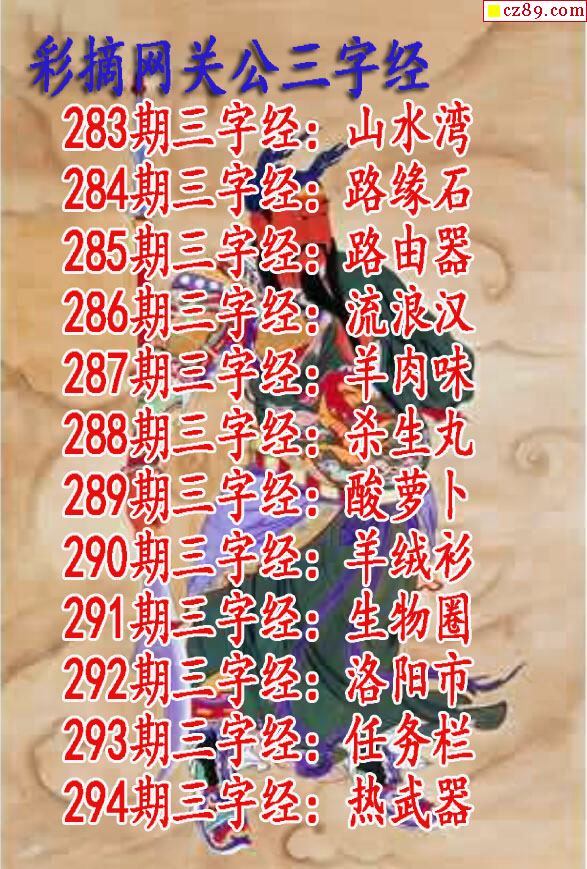 cz89.com
彩摘网关公三字经
283期三字经：山水湾
284期三字经：路缘石
285期三字经：路由器
286期三字经：流浪汉
287期三字经：羊肉味
288期三字经：杀生丸
289期三字经：酸萝卜
290期三字经：羊绒衫
291期三字经：生物圈
292期三字经：洛阳市
293期三字经：任务栏
294期三字经：热武器